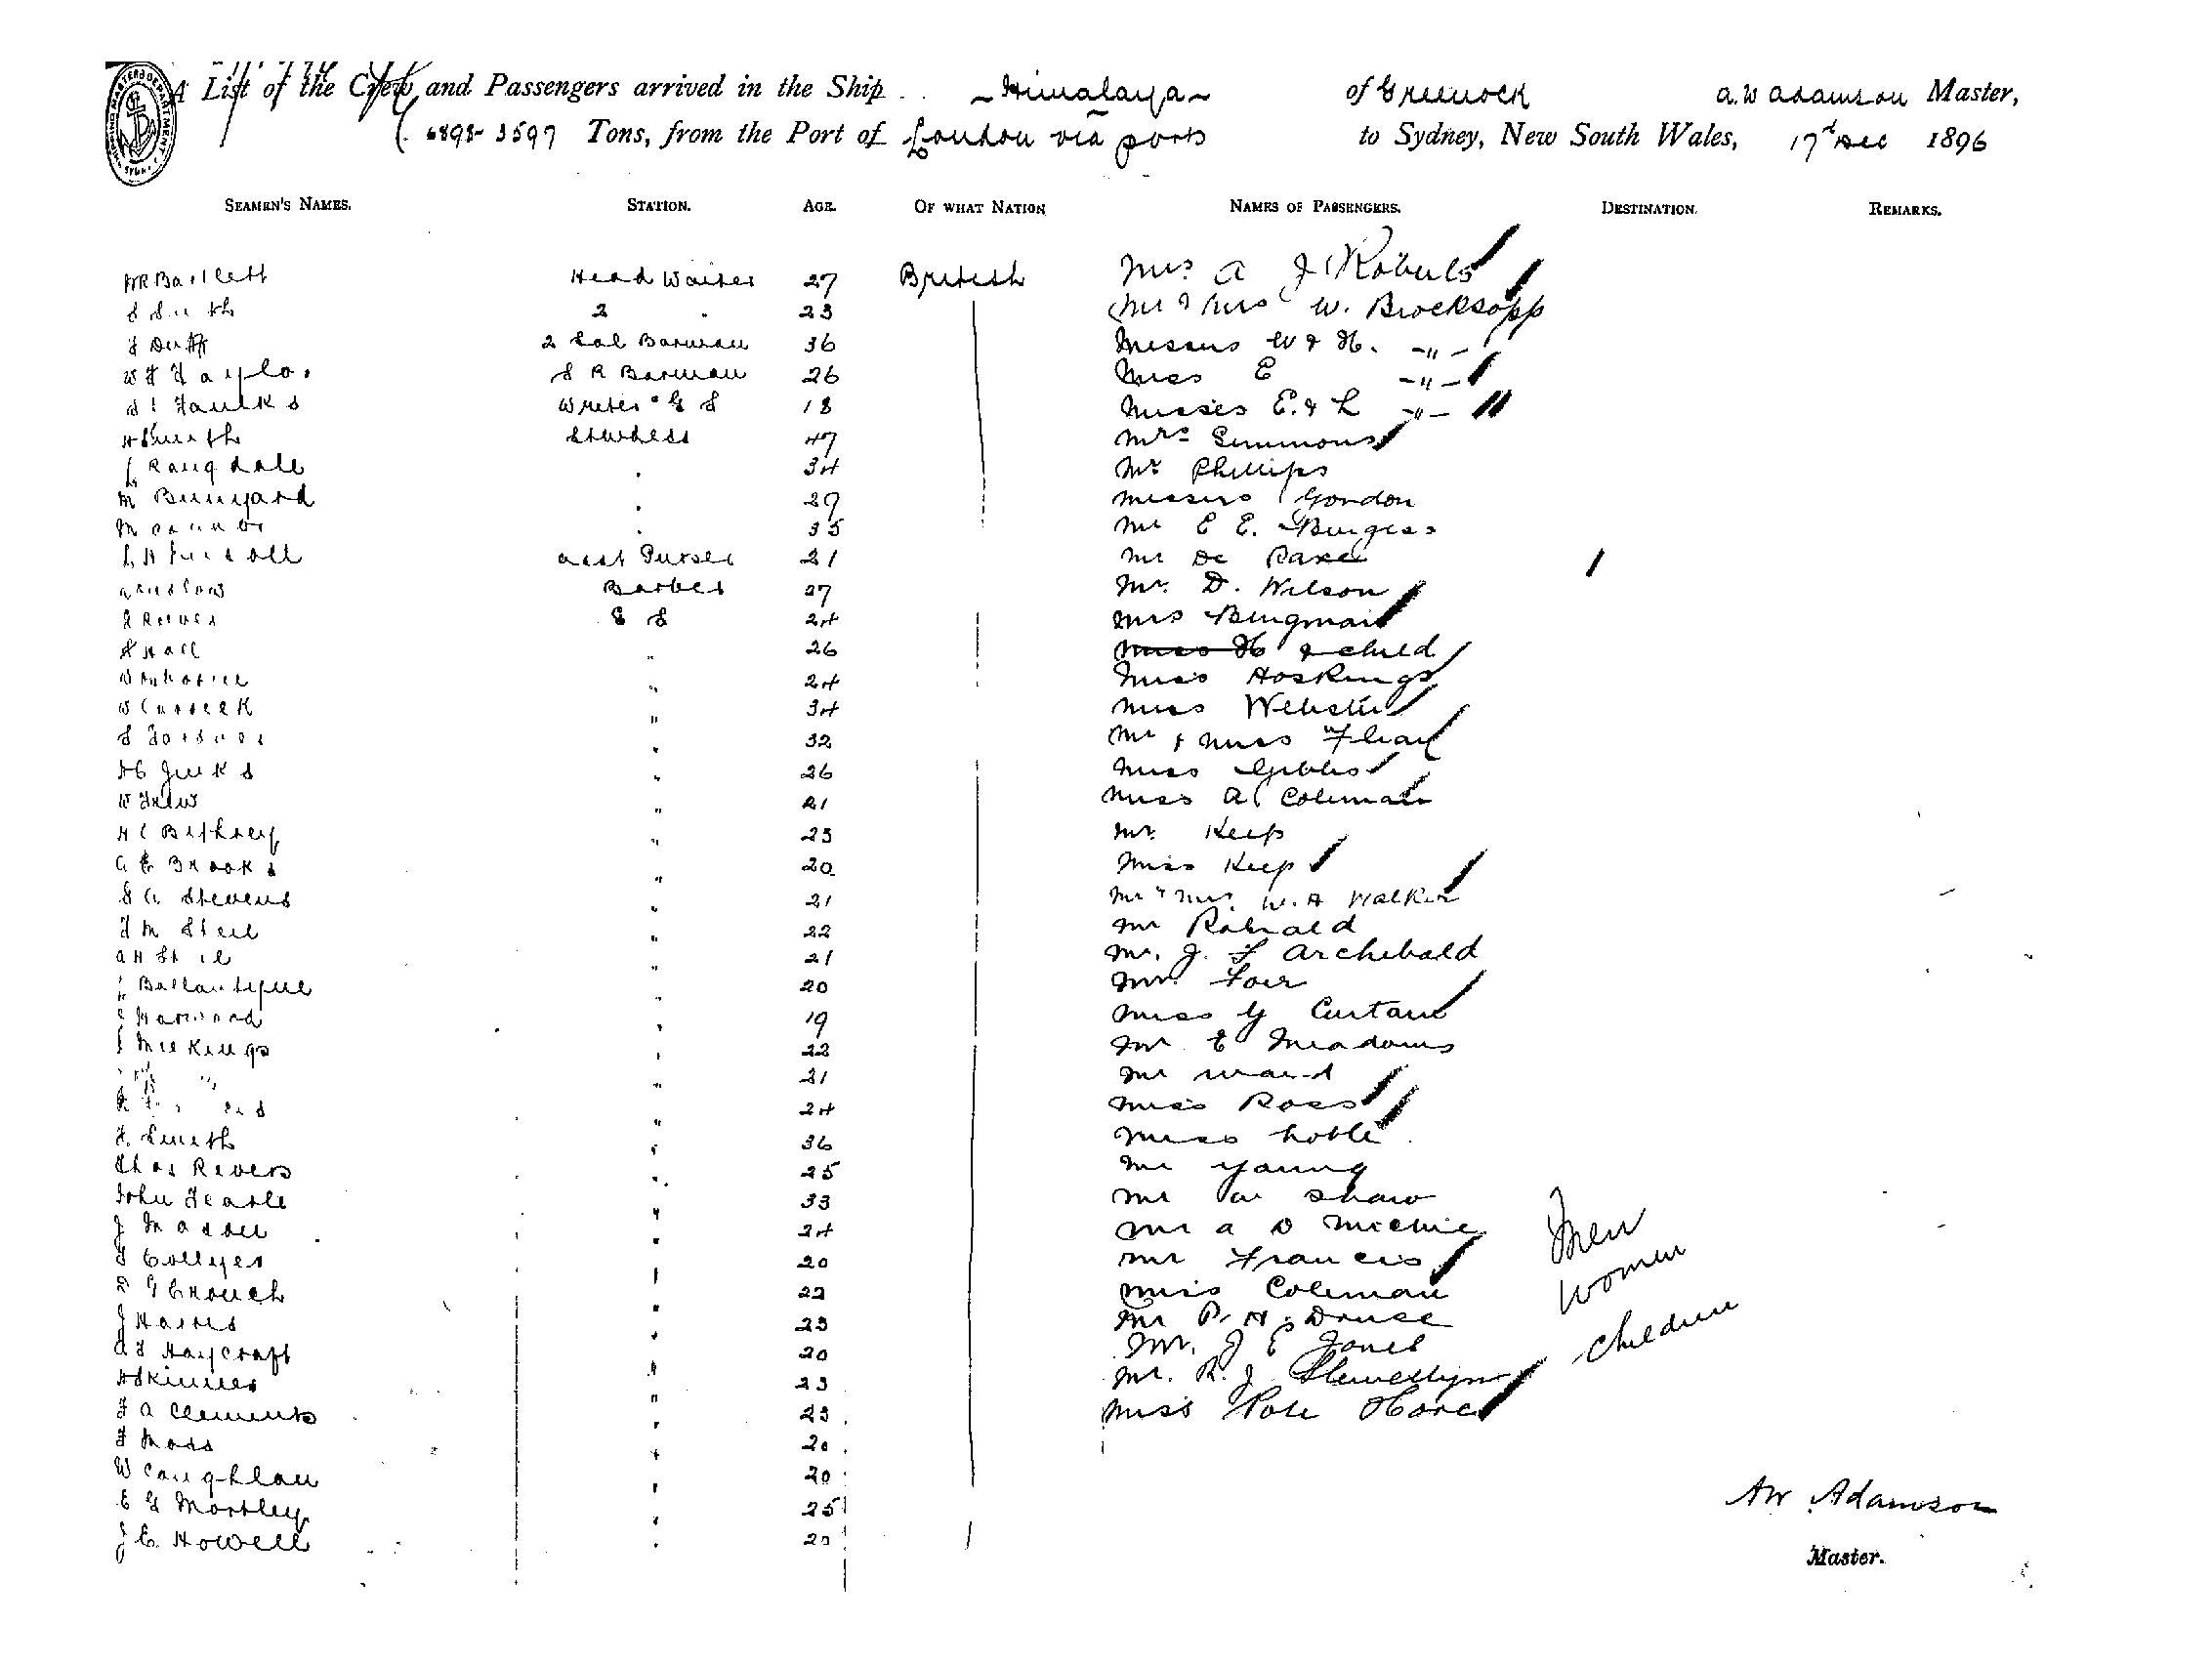 A List of the Crew and Passengers arrived in the Ship Himalaya of Greenock A.W Adamson Master,
6898-3597 Tons, from the Port of London via ports to Sydney, New South Wales, 17th Dec 1896
SEAMEN'S NAMES. STATION. AGE. OF WHAT NATION NAMES OF PASSENGERS. DESTINATION. REMARKS.
WR Bartlett Head Waiter 27 British Mrs A J Roberts
S Smith 2 " 23 Mr & Mrs W. Brocksopp
J Duff 2 Sal Barman 36 Messrs W & H. -"-
W F Taylor S R Barman 26 Miss E -"-
Faulks Writer G S 18 Misses E. & L -"-
H Smith Stewdess 47 Mrs Simmons
L Rangdale " 34 Mr Phillips
M Bunyard " 29 Messrs Gordon
M Connor " 35 Mr E E. Burgess
asst Purser 21 Mr De
Barber 27 Mr. D. Wilson
J Reeves G S 24 Mrs Bingman
S Hall " 26 & child
W " 24 Miss Hoskings
W " 34 Miss Webster
S " 32 Mr & Miss
Jinks " 26 Miss Gibbs
W Frew " 21 Miss A Coleman
H C " 23 Mr. Keep
A E Brooks " 20 Miss Keep
S A Stevens " 21 Mr & Mrs. W. A Walker
F M Steil " 22 Mr
A H " 21 Mr. J. F Archibald
Ballantyne " 20 Mr.
Harwood " 19 Miss G
Milkings " 22 Mr E Meadows
" 21 Mr Ward
" 24 Miss Ross
F. Smith " 36 Miss Noble
Thos Rivers " 25 Mr Young
John Tearle " 33 Mr W Shaw
J Mason " 24 Mr A D Michie Men
F Collyer " 20 Mr Francis Women
G Crouch " 22 Miss Coleman
J Harris " 23 Mr P. H. Druce Children
A F Haycraft " 20 Mr. J E Jones
H Skinner " 23 Mr. R. J Llewellyn
F A Clements " 23 Miss Pole
F Moss " 20
W Caughlan " 20
E G Mortley " 25 AW Adamson
J E. Howell " 20
Master.